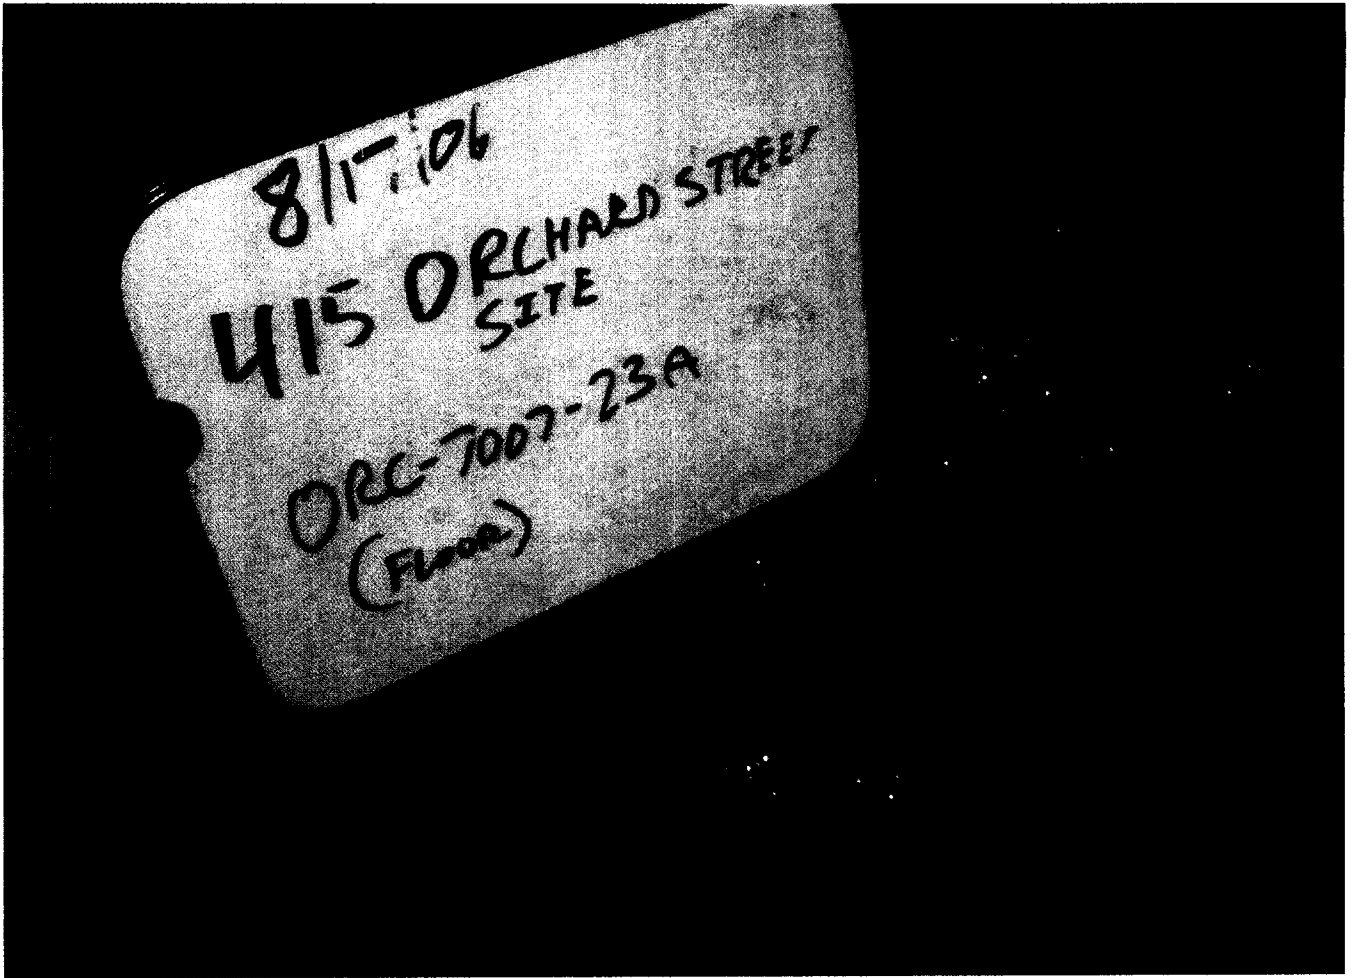 8/17/06
415 ORCHARD STREET
SITE
ORC-7007-23A
(FLOOR)